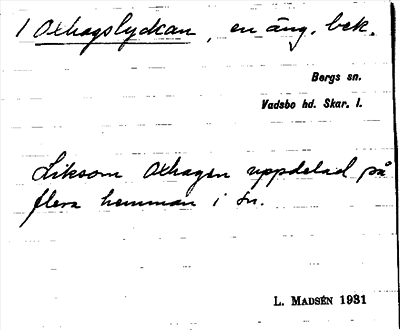 1 Oxhagslyckan, en äng. bek.
Bergs sn.
Vadsbo hd. Skar. l.
Liksom Oxhagen uppdelad på
flera hemman i sn.
L. MADSÉN 1931